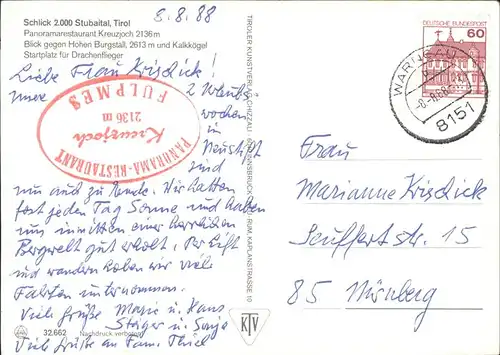 8.8.88
Schlick 2.000 Stubaital, Tirol
Panoramarestaurant Kreuzjoch 2136 m
Blick gegen Hohen Burgstall, 2613 m und Kalkkögel
Startplatz für Drachenflieger
Liebe Frau Krisdick!
2
wochen
in
Neustift
sind
nun auch zu Ende. Wir hatten
fast jeden Tag Sonne und haben
uns inmitten einer herrlichen
Bergwelt gut erholt. Per Lift
und wandern haben wir viele
Fahrten unternommen.
Viele Grüße Marie u. Hans
Steiger u. Sonja
Viele Grüße an Fam. Thiel
PANORAMA-RESTAURANT
Kreuzjoch
2136 m
FULPMES
32.662 Nachdruck verboten
TIROLER KUNSTVERLAG CHIZZALI INNSBRUCK RUM KAPLANSTRASSE 10
KTV
DEUTSCHE BUNDESPOST
60
WARNGAU
-8.-8.88
8151
Frau
Marianne Krisdick
Seuffertstr. 15
85 Nürnberg